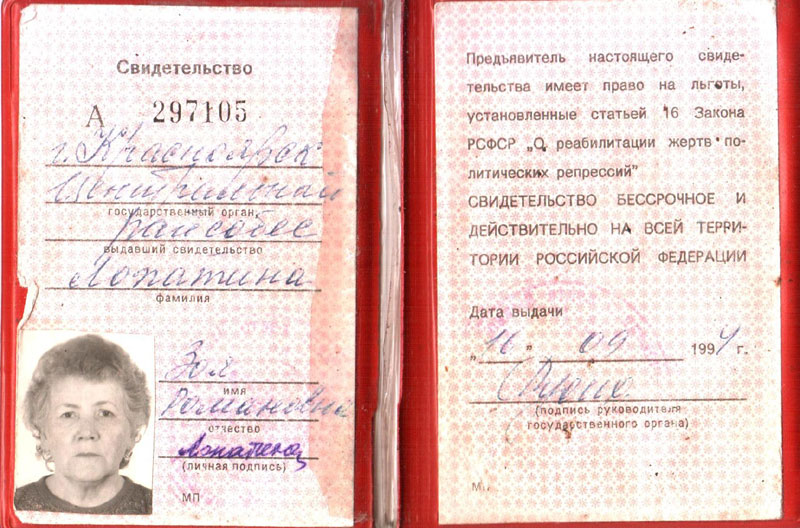 Свидетельство
А 297105
г. Красноярск
Центральный
государственный орган,
райсобес
выдавший свидетельство
Лопатина
фамилия
Зоя
имя
Романовна
отчество
Лопатина
(личная подпись)
МП
Предъявитель настоящего свиде-
тельства имеет право на льготы,
установленные статьей 16 Закона
РСФСР „О реабилитации жертв по-
литических репрессий"
СВИДЕТЕЛЬСТВО БЕССРОЧНОЕ И
ДЕЙСТВИТЕЛЬНО НА ВСЕЙ ТЕРРИ-
ТОРИИ РОССИЙСКОЙ ФЕДЕРАЦИИ
Дата выдачи
„16" 09 1994 г.
(подпись руководителя
государственного органа)
МП